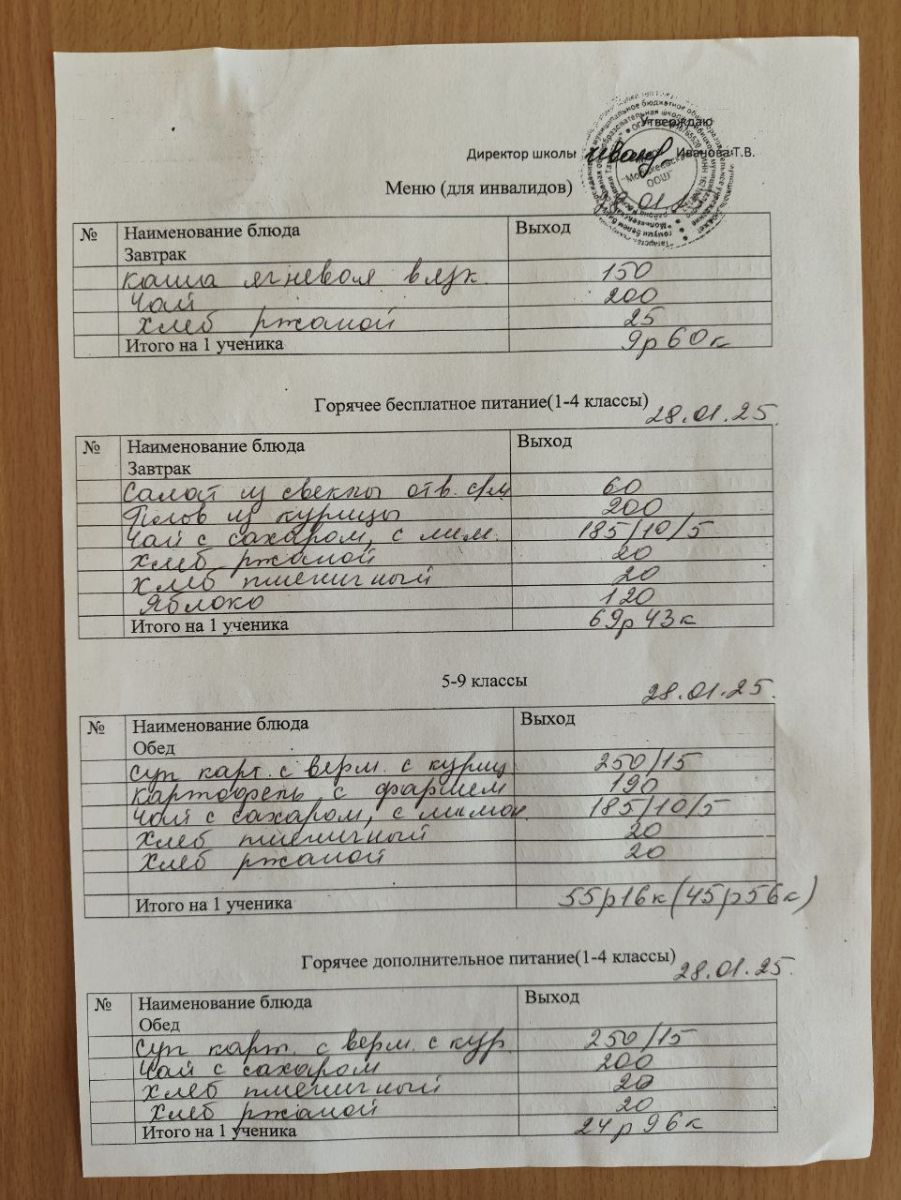 Утверждаю
Директор школы Иванова Т.В.
Меню (для инвалидов)
28.01.25
№ Наименование блюда Выход
Завтрак
Каша ягневая вязк. 150
Чай 200
Хлеб ржаной 25
Итого на 1 ученика 9р60к
Горячее бесплатное питание(1-4 классы) 28.01.25.
№ Наименование блюда Выход
Завтрак
Салат из свеклы отв. с р/м 60
Плов из курицы 200
Чай с сахаром, с лим. 185/10/5
Хлеб ржаной 20
Хлеб пшеничный 20
Яблоко 120
Итого на 1 ученика 69р43к
5-9 классы 28.01.25.
№ Наименование блюда Выход
Обед
Суп карт. с верм. с куриц 250/15
Картофель с фаршем 190
Чай с сахаром, с лимон. 185/10/5
Хлеб пшеничный 20
Хлеб ржаной 20
Итого на 1 ученика 55р16к(45р56к)
Горячее дополнительное питание(1-4 классы) 28.01.25.
№ Наименование блюда Выход
Обед
Суп карт. с верм. с кур. 250/15
Чай с сахаром 200
Хлеб пшеничный 20
Хлеб ржаной 20
Итого на 1 ученика 24р96к